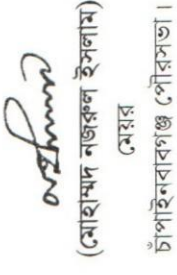 (মোহাম্মদ নজরুল ইসলাম)
মেয়র
চাঁপাইনবাবগঞ্জ পৌরসভা।